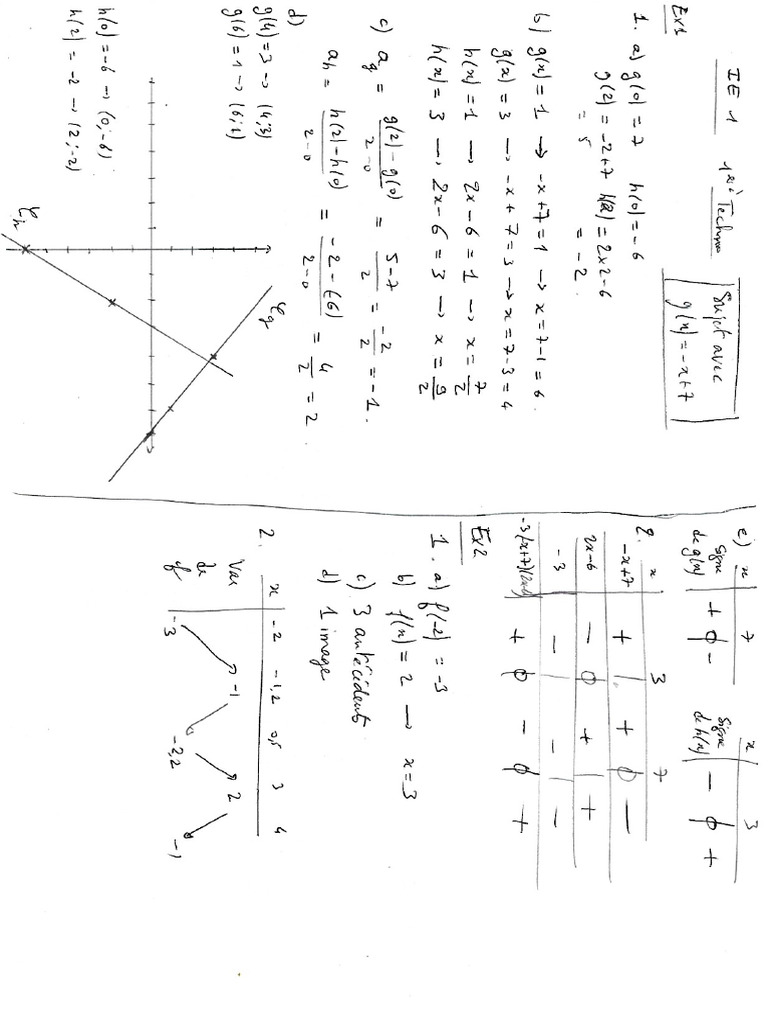 IE 1 1ère Techno
Sujet avec
g(x) = -x+7
Ex1
1. a) g(0) = 7 h(0) = -6
g(2) = -2+7 h(2) = 2x2-6
= 5 = -2.
b) g(x) = 1 → -x+7 = 1 → x = 7-1 = 6.
g(x) = 3 → -x+7 = 3 → x = 7-3 = 4
h(x) = 1 → 2x-6 = 1 → x = 7/2
h(x) = 3 → 2x-6 = 3 → x = 9/2
c) a_g = (g(2)-g(0))/(2-0) = (5-7)/2 = -2/2 = -1.
a_h = (h(2)-h(0))/(2-0) = (-2-(-6))/(2-0) = 4/2 = 2.
d)
g(4) = 3 → (4;3)
g(6) = 1 → (6;1)
h(0) = -6 → (0;-6)
h(2) = -2 → (2;-2)
𝒞g
𝒞h
e) x 7
Signe de g(x) + 0 -
x 3
Signe de h(x) - 0 +
2. x 3 7
-x+7 + + 0 -
2x-6 - 0 + +
-3 - - -
-3(-x+7)(2x-6) + 0 - 0 +
Ex2
1. a) f(-2) = -3
b) f(x) = 2 → x = 3
c) 3 antécédents
d) 1 image
2. x -2 -1,2 0,5 3 4
Var de f -3 -1 -3,2 2 -1